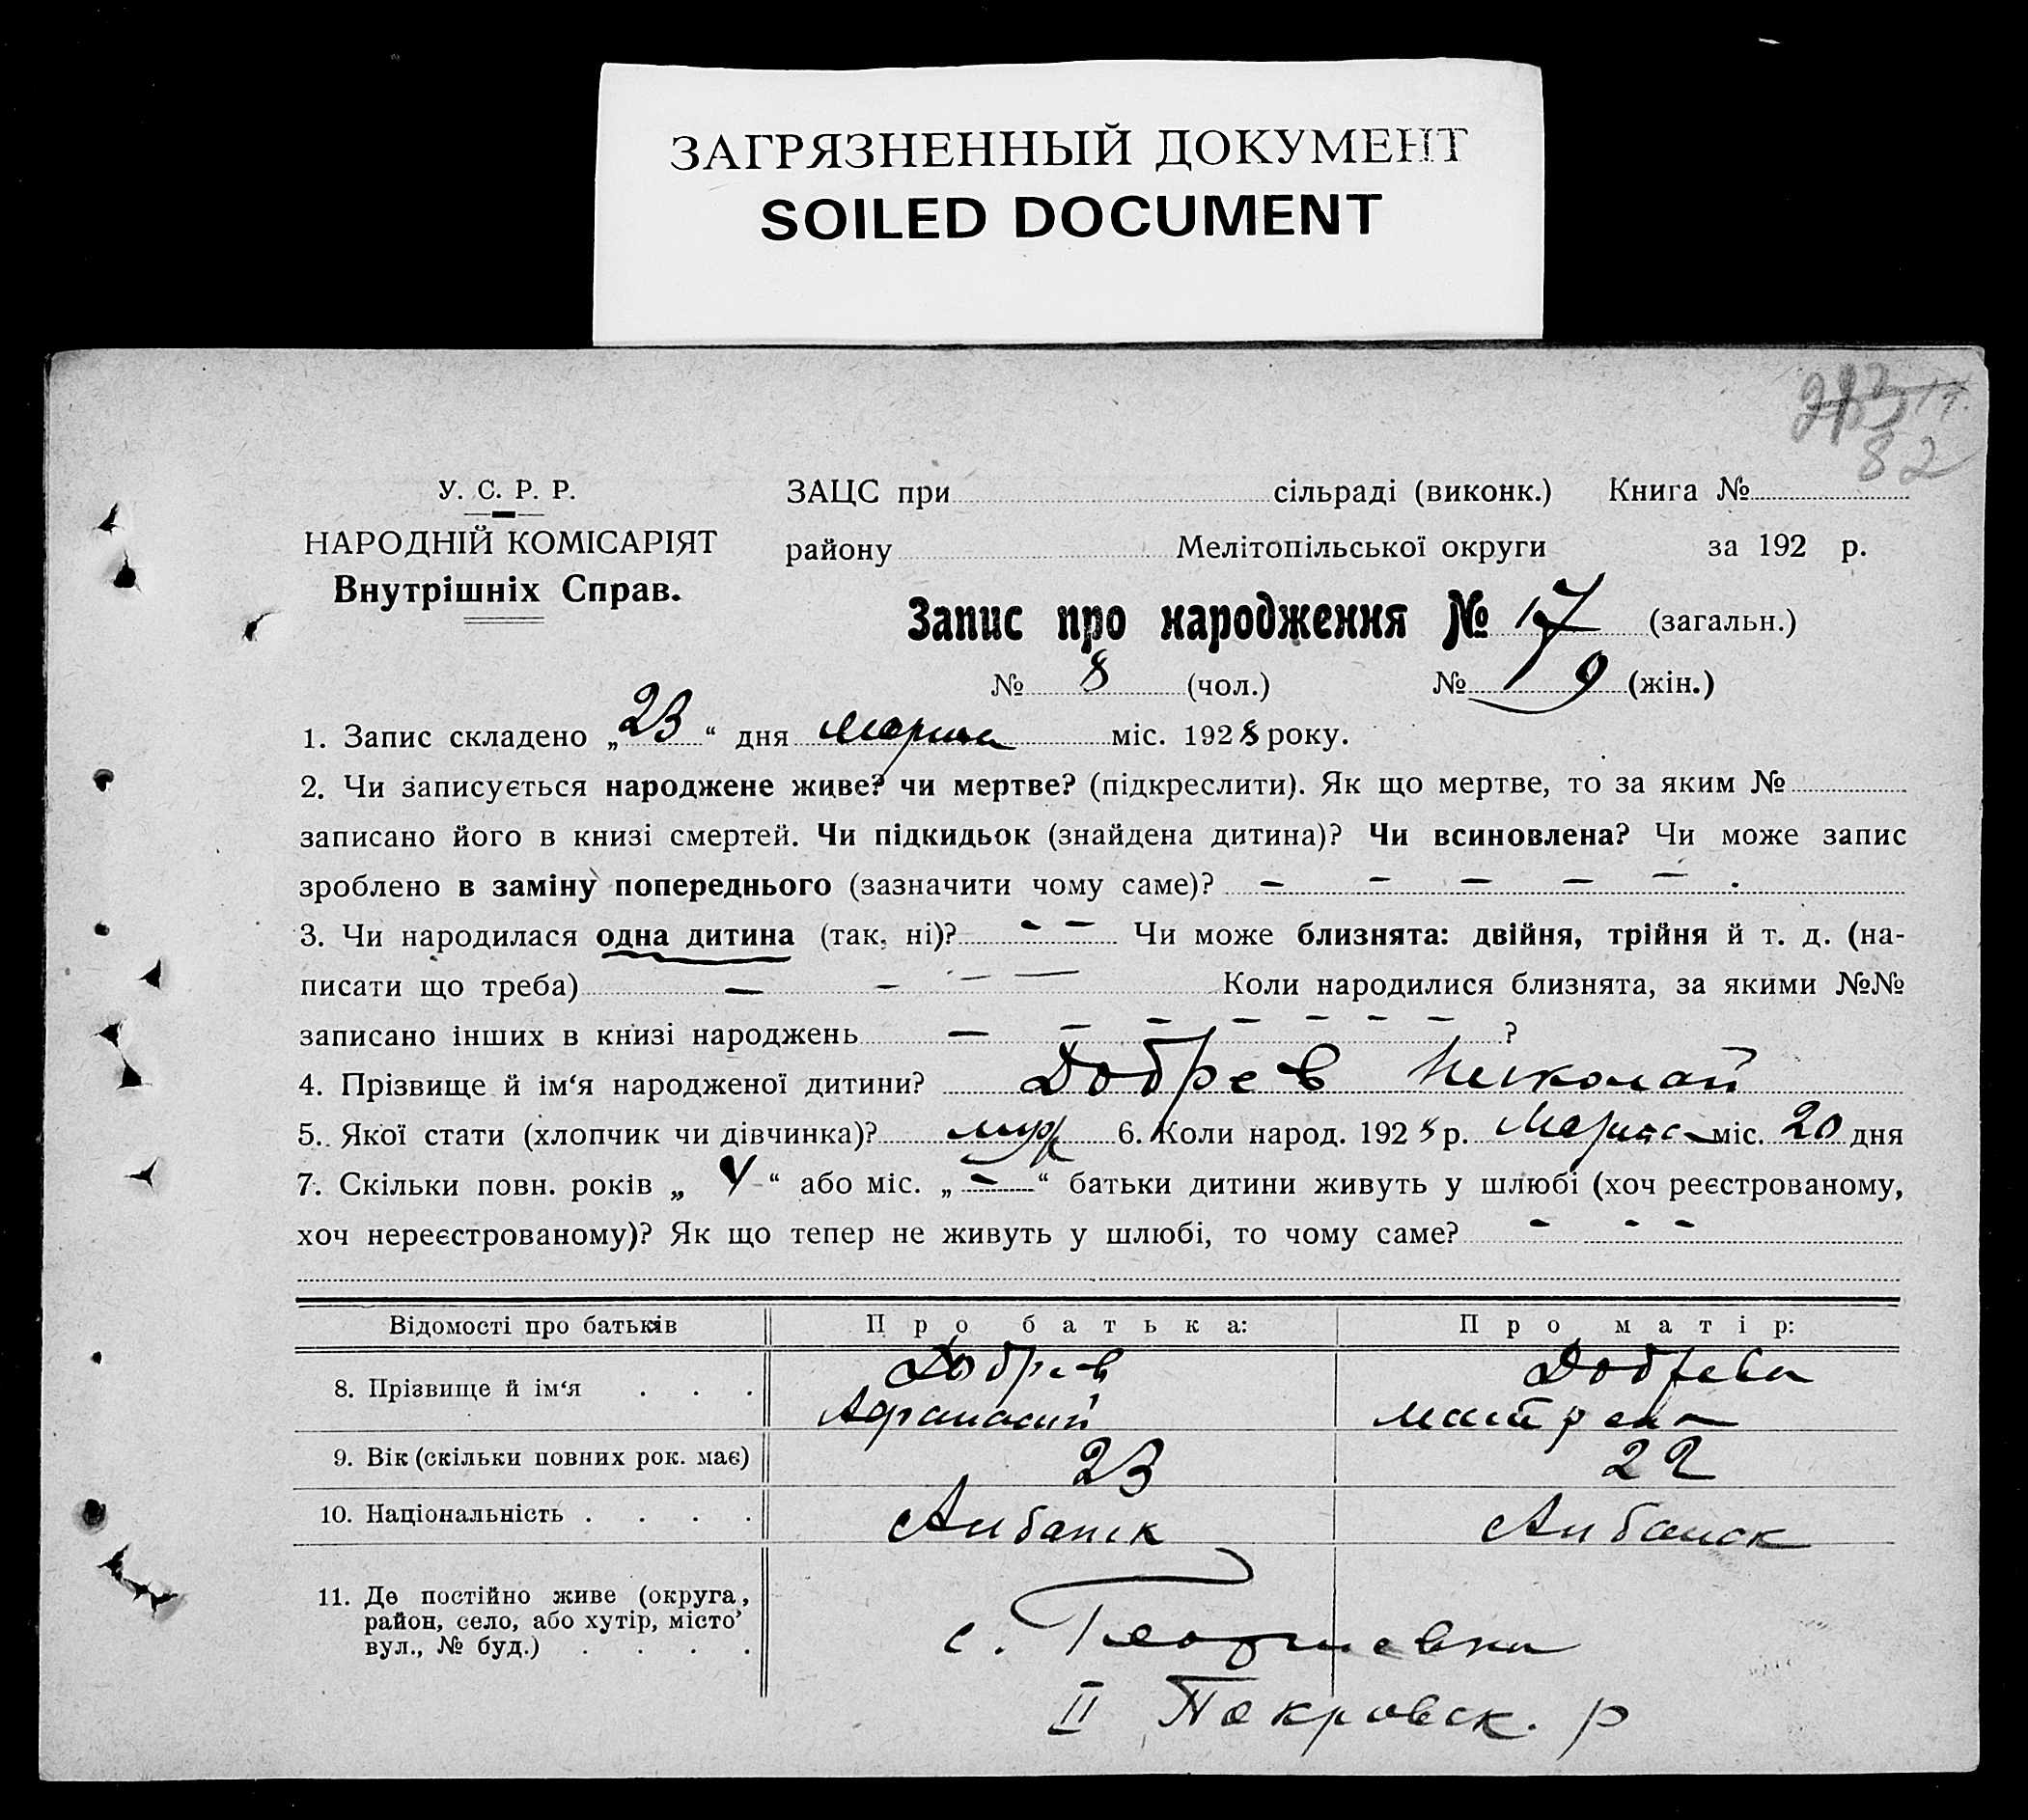 ЗАГРЯЗНЕННЫЙ ДОКУМЕНТ
SOILED DOCUMENT
82
У. С. Р. Р.
НАРОДНІЙ КОМІСАРІЯТ
Внутрішніх Справ.
ЗАЦС при сільраді (виконк.) Книга №
району Мелітопільської округи за 192 р.
Запис про народження № 17 (загальн.)
№ 8 (чол.) № 9 (жін.)
1. Запис складено „23“ дня Марта міс. 1928 року.
2. Чи записується народжене живе? чи мертве? (підкреслити). Як що мертве, то за яким №
записано його в книзі смертей. Чи підкидьок (знайдена дитина)? Чи всиновлена? Чи може запис
зроблено в заміну попереднього (зазначити чому саме)? — — — — —
3. Чи народилася одна дитина (так, ні)? - - Чи може близнята: двійня, трійня й т. д. (на-
писати що треба) — - - — Коли народилися близнята, за якими №№
записано інших в книзі народжень — - - - - - - ?
4. Прізвище й ім‘я народженої дитини? Добрев Николай
5. Якої стати (хлопчик чи дівчинка)? муж 6. Коли народ. 1928 р. Марта міс. 20 дня
7. Скільки повн. років „ 4 “ або міс. „ - “ батьки дитини живуть у шлюбі (хоч реєстрованому,
хоч нереєстрованому)? Як що тепер не живуть у шлюбі, то чому саме? - - -
Відомості про батьків Про батька: Про матір:
8. Прізвище й ім‘я . . . Добрев Добрева
Афанасий Матрена
9. Вік (скільки повних рок. має) 23 22
10. Національність . . . . Албанск Албанск
11. Де постійно живе (округа,
район, село, або хутір, місто’
вул., № буд.) . . . .
с. Георгиевка
II Покровск. р